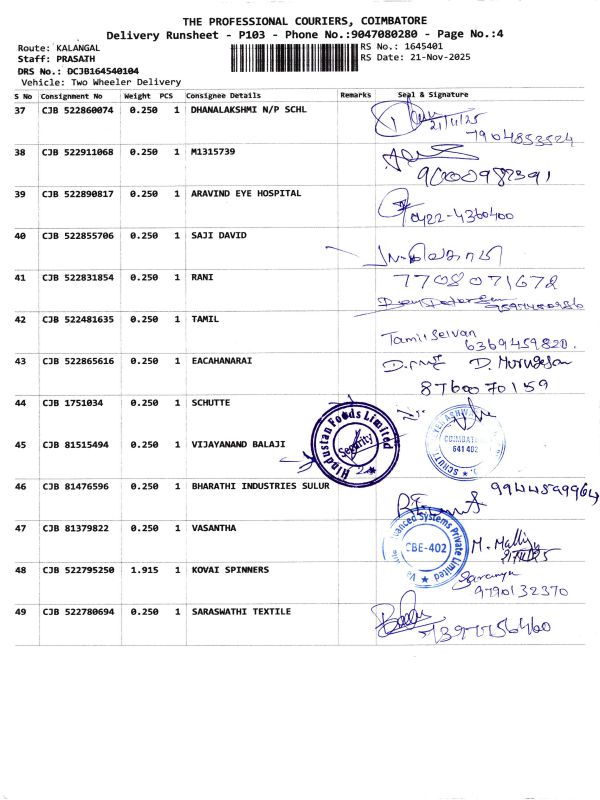 THE PROFESSIONAL COURIERS, COIMBATORE
Delivery Runsheet - P103 - Phone No.:9047080280 - Page No.:4
Route: KALANGAL
RS No.: 1645401
Staff: PRASATH
RS Date: 21-Nov-2025
DRS No.: DCJB164540104
Vehicle: Two Wheeler Delivery
S No Consignment No Weight PCS Consignee Details Remarks Seal & Signature
37 CJB 522860074 0.250 1 DHANALAKSHMI N/P SCHL
21/11/25
7904853524
38 CJB 522911068 0.250 1 M1315739
39 CJB 522890817 0.250 1 ARAVIND EYE HOSPITAL
0422-4360400
40 CJB 522855706 0.250 1 SAJI DAVID
41 CJB 522831854 0.250 1 RANI
7708071672
42 CJB 522481635 0.250 1 TAMIL
Tamil Selvan
6369459820.
43 CJB 522865616 0.250 1 EACAHANARAI
D. Murugesan
8760070159
44 CJB 1751034 0.250 1 SCHUTTE
Hindustan Foods Limited
Security
COIMBATORE
641 402
45 CJB 81515494 0.250 1 VIJAYANAND BALAJI
46 CJB 81476596 0.250 1 BHARATHI INDUSTRIES SULUR
9944599964
47 CJB 81379822 0.250 1 VASANTHA
Advanced Systems Private Limited
CBE-402
M. Malliy
48 CJB 522795250 1.915 1 KOVAI SPINNERS
Saranya
9790132370
49 CJB 522780694 0.250 1 SARASWATHI TEXTILE